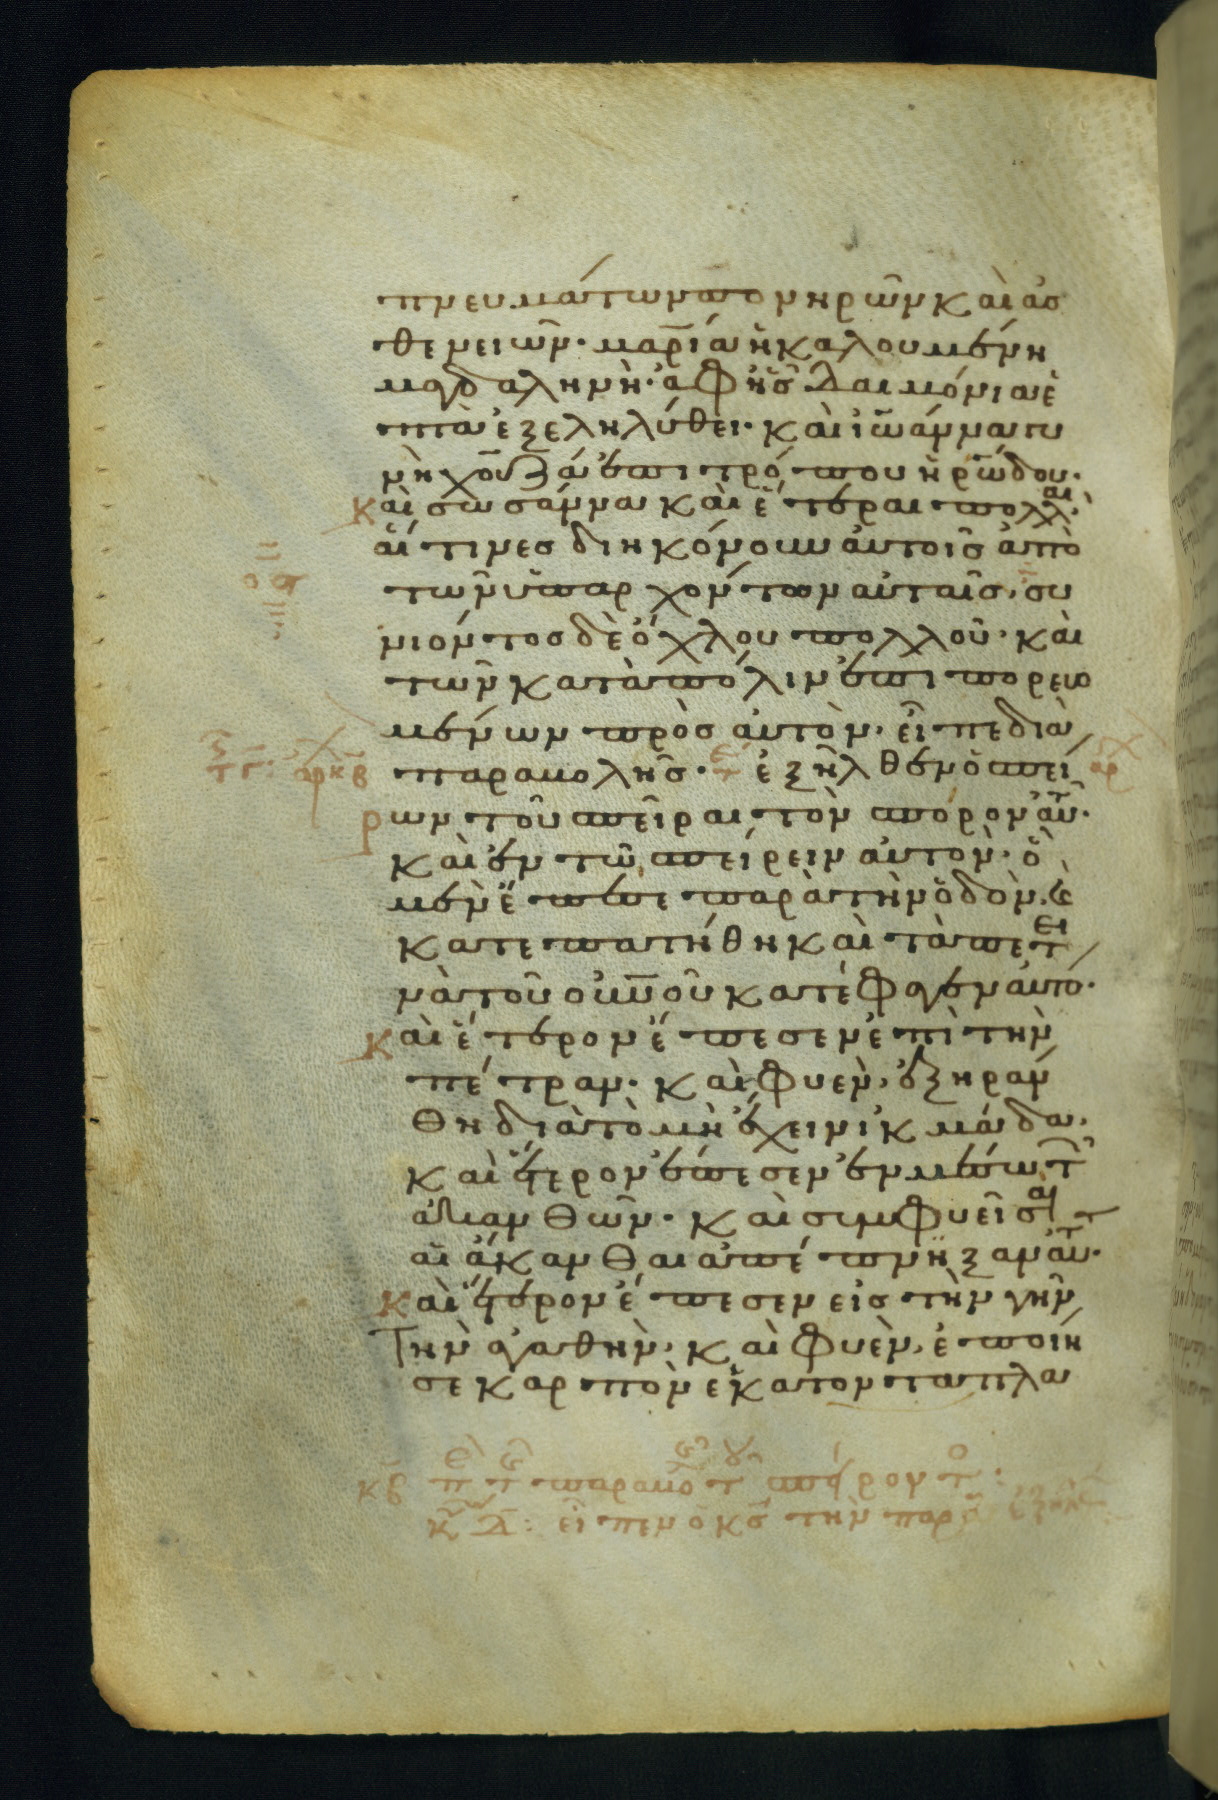 πνευμάτων πονηρῶν καὶ ἀσ
θενειῶν· μαρία ἡ καλουμένη
μαγδαληνὴ· ἀφ ἧς δαιμόνια ἑ
πτὰ ἐξεληλύθει· καὶ ἰωάννα γυ
νὴ χουζᾶ ἐπιτρόπου ἡρώδου·
καὶ σωσάννα καὶ ἕτεραι πολλαὶ·
αἵτινες διηκόνουν αὐτοῖς ἀπὸ
τῶν ὑπαρχόντων αὐταῖς· συ
νιόντος δὲ ὄχλου πολλοῦ· καὶ
τῶν κατὰ πόλιν ἐπιπορευο
μένων πρὸς αὐτὸν· εἶπε διὰ
παραβολῆς· ἐξῆλθεν ὁ σπεί
ρων τοῦ σπεῖραι τὸν σπόρον αὐτοῦ·
καὶ ἐν τῶ σπείρειν αὐτὸν· ὃ
μὲν ἔπεσε παρὰ τὴν ὁδὸν· καὶ
κατεπατήθη καὶ τὰ πετει
νὰ τοῦ οὐνοῦ κατέφαγεν αὐτό·
καὶ ἕτερον ἔπεσεν ἐπὶ τὴν
πέτραν· καὶ φυὲν, ἐξηράν
θη διὰ τὸ μὴ ἔχειν ἰκμάδα·
καὶ ἕτερον ἔπεσεν ἐν μέσω τῶν
ἀκανθῶν· καὶ συμφυεῖσαι
αἱ ἄκανθαι ἀπέπνηξαν αὐτό·
καὶ ἕτερον ἔπεσεν εἰς τὴν γῆν
Τὴν ἀγαθὴν· καὶ φυὲν, ἐποίη
σε καρπὸν ἑκατονταπλα
κβ π τ παραβο τ σπείρον τ :
εἶπεν ὁ κς τὴν παρα